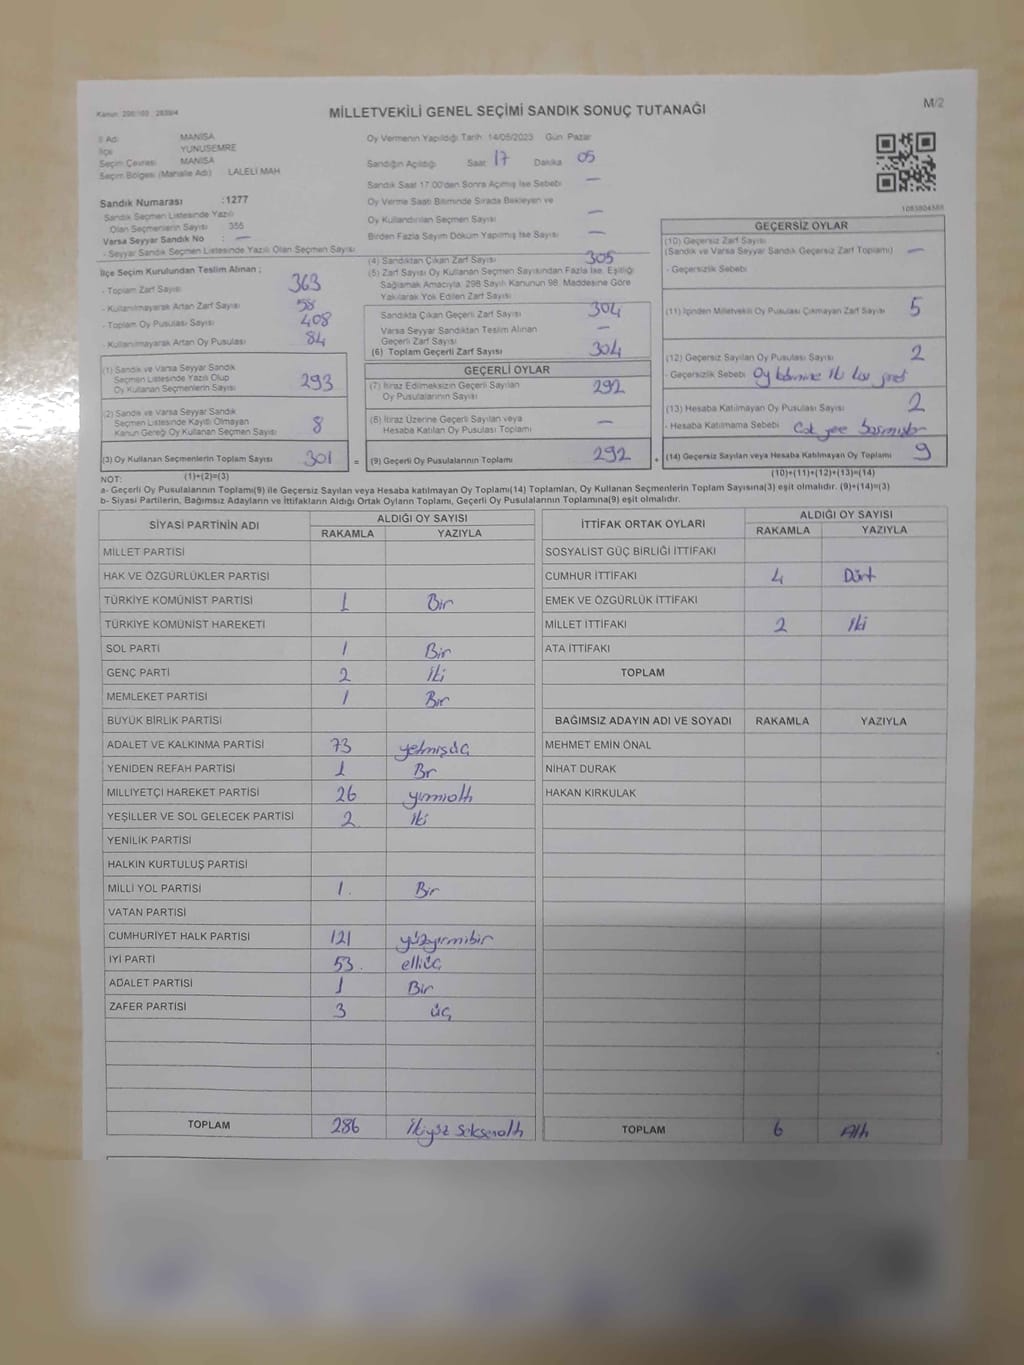 MİLLETVEKİLİ GENEL SEÇİMİ SANDIK SONUÇ TUTANAĞI
M/2
İl Adı MANİSA
İlçe YUNUSEMRE
Seçim Çevresi MANİSA
Seçim Bölgesi (Mahalle Adı) LALELİ MAH
Sandık Numarası :1277
Sandık Seçmen Listesinde Yazılı
Olan Seçmenlerin Sayısı 355
Varsa Seyyar Sandık No : —
- Seyyar Sandık Seçmen Listesinde Yazılı Olan Seçmen Sayısı
İlçe Seçim Kurulundan Teslim Alınan ;
- Toplam Zarf Sayısı 363
- Kullanılmayarak Artan Zarf Sayısı 58
- Toplam Oy Pusulası Sayısı 408
- Kullanılmayarak Artan Oy Pusulası 84
(1) Sandık ve Varsa Seyyar Sandık
Seçmen Listesinde Yazılı Olup
Oy Kullanan Seçmenlerin Sayısı 293
(2) Sandık ve Varsa Seyyar Sandık
Seçmen Listesinde Kayıtlı Olmayan
Kanun Gereği Oy Kullanan Seçmen Sayısı 8
(3) Oy Kullanan Seçmenlerin Toplam Sayısı 301
(1)+(2)=(3)
Oy Vermenin Yapıldığı Tarih 14/05/2023 Gün Pazar
Sandığın Açıldığı Saat 17 Dakika 05
Sandık Saat 17:00'den Sonra Açılmış İse Sebebi —
Oy Verme Saati Bitiminde Sırada Bekleyen ve
Oy Kullandırılan Seçmen Sayısı —
Birden Fazla Sayım Döküm Yapılmış İse Sayısı —
(4) Sandıktan Çıkan Zarf Sayısı 305
(5) Zarf Sayısı Oy Kullanan Seçmen Sayısından Fazla İse, Eşitliği
Sağlamak Amacıyla, 298 Sayılı Kanunun 98. Maddesine Göre
Yakılarak Yok Edilen Zarf Sayısı
Sandıkta Çıkan Geçerli Zarf Sayısı 304
Varsa Seyyar Sandıktan Teslim Alınan
Geçerli Zarf Sayısı —
(6) Toplam Geçerli Zarf Sayısı 304
GEÇERLİ OYLAR
(7) İtiraz Edilmeksizin Geçerli Sayılan
Oy Pusulalarının Sayısı 292
(8) İtiraz Üzerine Geçerli Sayılan veya
Hesaba Katılan Oy Pusulası Toplamı —
= (9) Geçerli Oy Pusulalarının Toplamı 292 +
GEÇERSİZ OYLAR
(10) Geçersiz Zarf Sayısı
(Sandık ve Varsa Seyyar Sandık Geçersiz Zarf Toplamı) —
- Geçersizlik Sebebi
(11) İçinden Milletvekili Oy Pusulası Çıkmayan Zarf Sayısı 5
(12) Geçersiz Sayılan Oy Pusulası Sayısı 2
- Geçersizlik Sebebi Oy
(13) Hesaba Katılmayan Oy Pusulası Sayısı 2
- Hesaba Katılmama Sebebi Çok yere basmışlar
(14) Geçersiz Sayılan veya Hesaba Katılmayan Oy Toplamı 9
(10)+(11)+(12)+(13)=(14)
NOT:
a- Geçerli Oy Pusulalarının Toplamı(9) ile Geçersiz Sayılan veya Hesaba katılmayan Oy Toplamı(14) Toplamları, Oy Kullanan Seçmenlerin Toplam Sayısına(3) eşit olmalıdır. (9)+(14)=(3)
b- Siyasi Partilerin, Bağımsız Adayların ve İttifakların Aldığı Ortak Oyların Toplamı, Geçerli Oy Pusulalarının Toplamına(9) eşit olmalıdır.
SİYASİ PARTİNİN ADI ALDIĞI OY SAYISI
RAKAMLA YAZIYLA
MİLLET PARTİSİ
HAK VE ÖZGÜRLÜKLER PARTİSİ
TÜRKİYE KOMÜNİST PARTİSİ 1 Bir
TÜRKİYE KOMÜNİST HAREKETİ
SOL PARTİ 1 Bir
GENÇ PARTİ 2 iki
MEMLEKET PARTİSİ 1 Bir
BÜYÜK BİRLİK PARTİSİ
ADALET VE KALKINMA PARTİSİ 73 yetmişüç
YENİDEN REFAH PARTİSİ 1 Bir
MİLLİYETÇİ HAREKET PARTİSİ 26 yirmialtı
YEŞİLLER VE SOL GELECEK PARTİSİ 2 iki
YENİLİK PARTİSİ
HALKIN KURTULUŞ PARTİSİ
MİLLİ YOL PARTİSİ 1. Bir
VATAN PARTİSİ
CUMHURİYET HALK PARTİSİ 121 yüzyirmibir
İYİ PARTİ 53. elliüç
ADALET PARTİSİ 1 Bir
ZAFER PARTİSİ 3 üç
TOPLAM 286 İkiyüz seksenaltı
İTTİFAK ORTAK OYLARI ALDIĞI OY SAYISI
RAKAMLA YAZIYLA
SOSYALİST GÜÇ BİRLİĞİ İTTİFAKI
CUMHUR İTTİFAKI 4 Dört
EMEK VE ÖZGÜRLÜK İTTİFAKI
MİLLET İTTİFAKI 2 iki
ATA İTTİFAKI
TOPLAM
BAĞIMSIZ ADAYIN ADI VE SOYADI RAKAMLA YAZIYLA
MEHMET EMİN ÖNAL
NİHAT DURAK
HAKAN KIRKULAK
TOPLAM 6 Altı